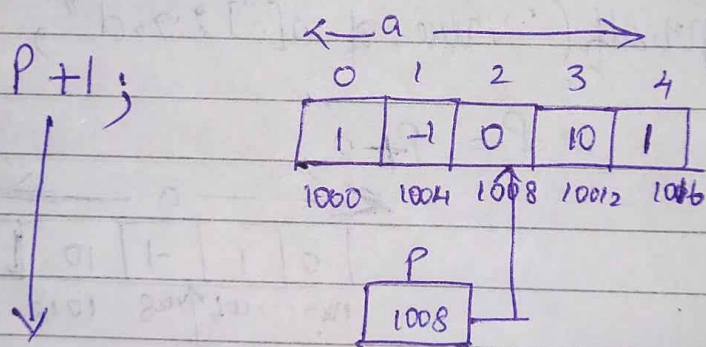 a
P+1;
0 1 2 3 4
1 -1 0 10 1
1000 1004 1008 10012 1016
P
1008